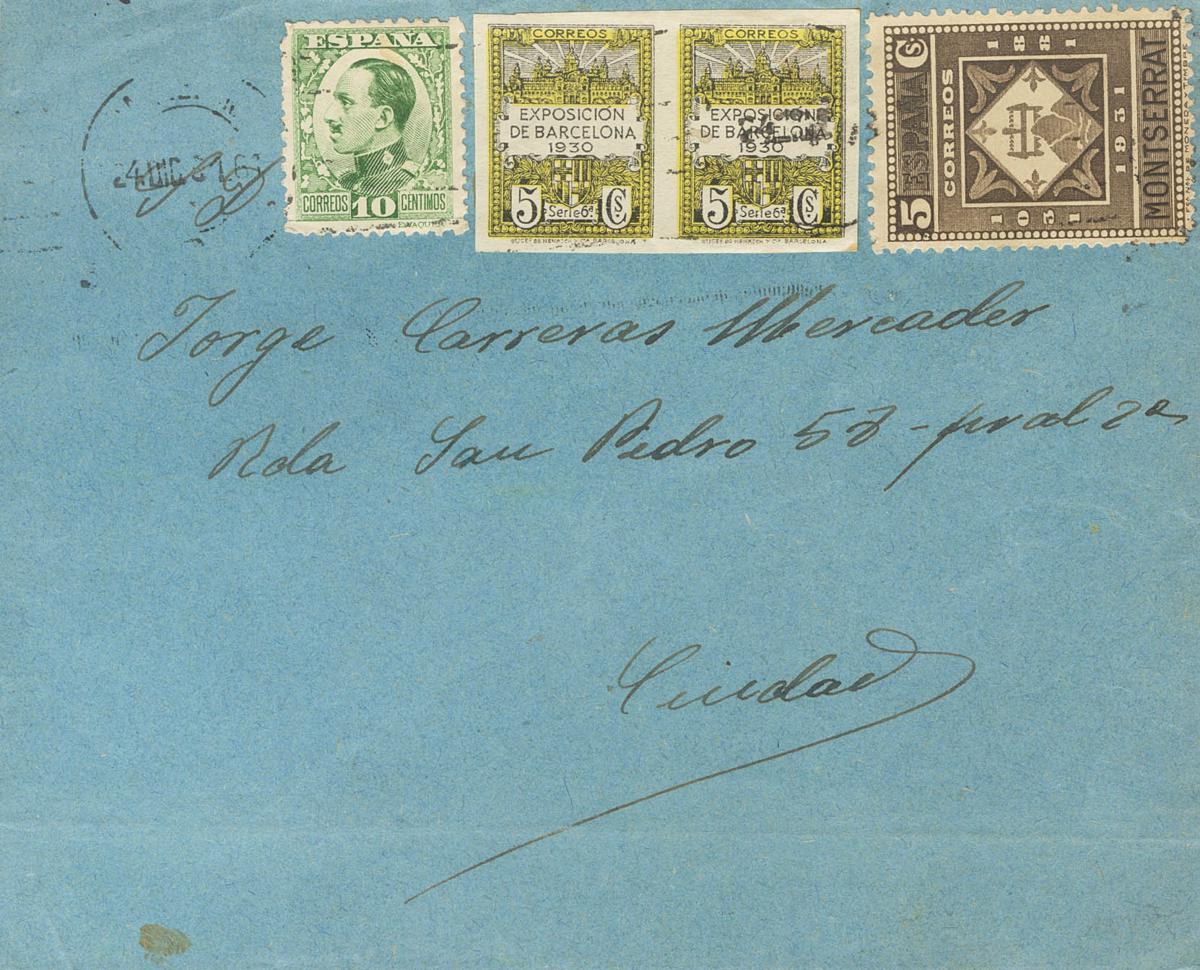 ESPAÑA
CORREOS 10 CENTIMOS
CORREOS
EXPOSICIÓN
DE BARCELONA
1930
5 Cs.
Serie 6ª
CORREOS
EXPOSICIÓN
DE BARCELONA
1930
5 Cs.
Serie 6ª
5 ESPAÑA Cs
CORREOS
1881
1031
1931
MONTSERRAT
Jorge Carreras Mercader
Rda San Pedro 53 - pral 2ª
Ciudad